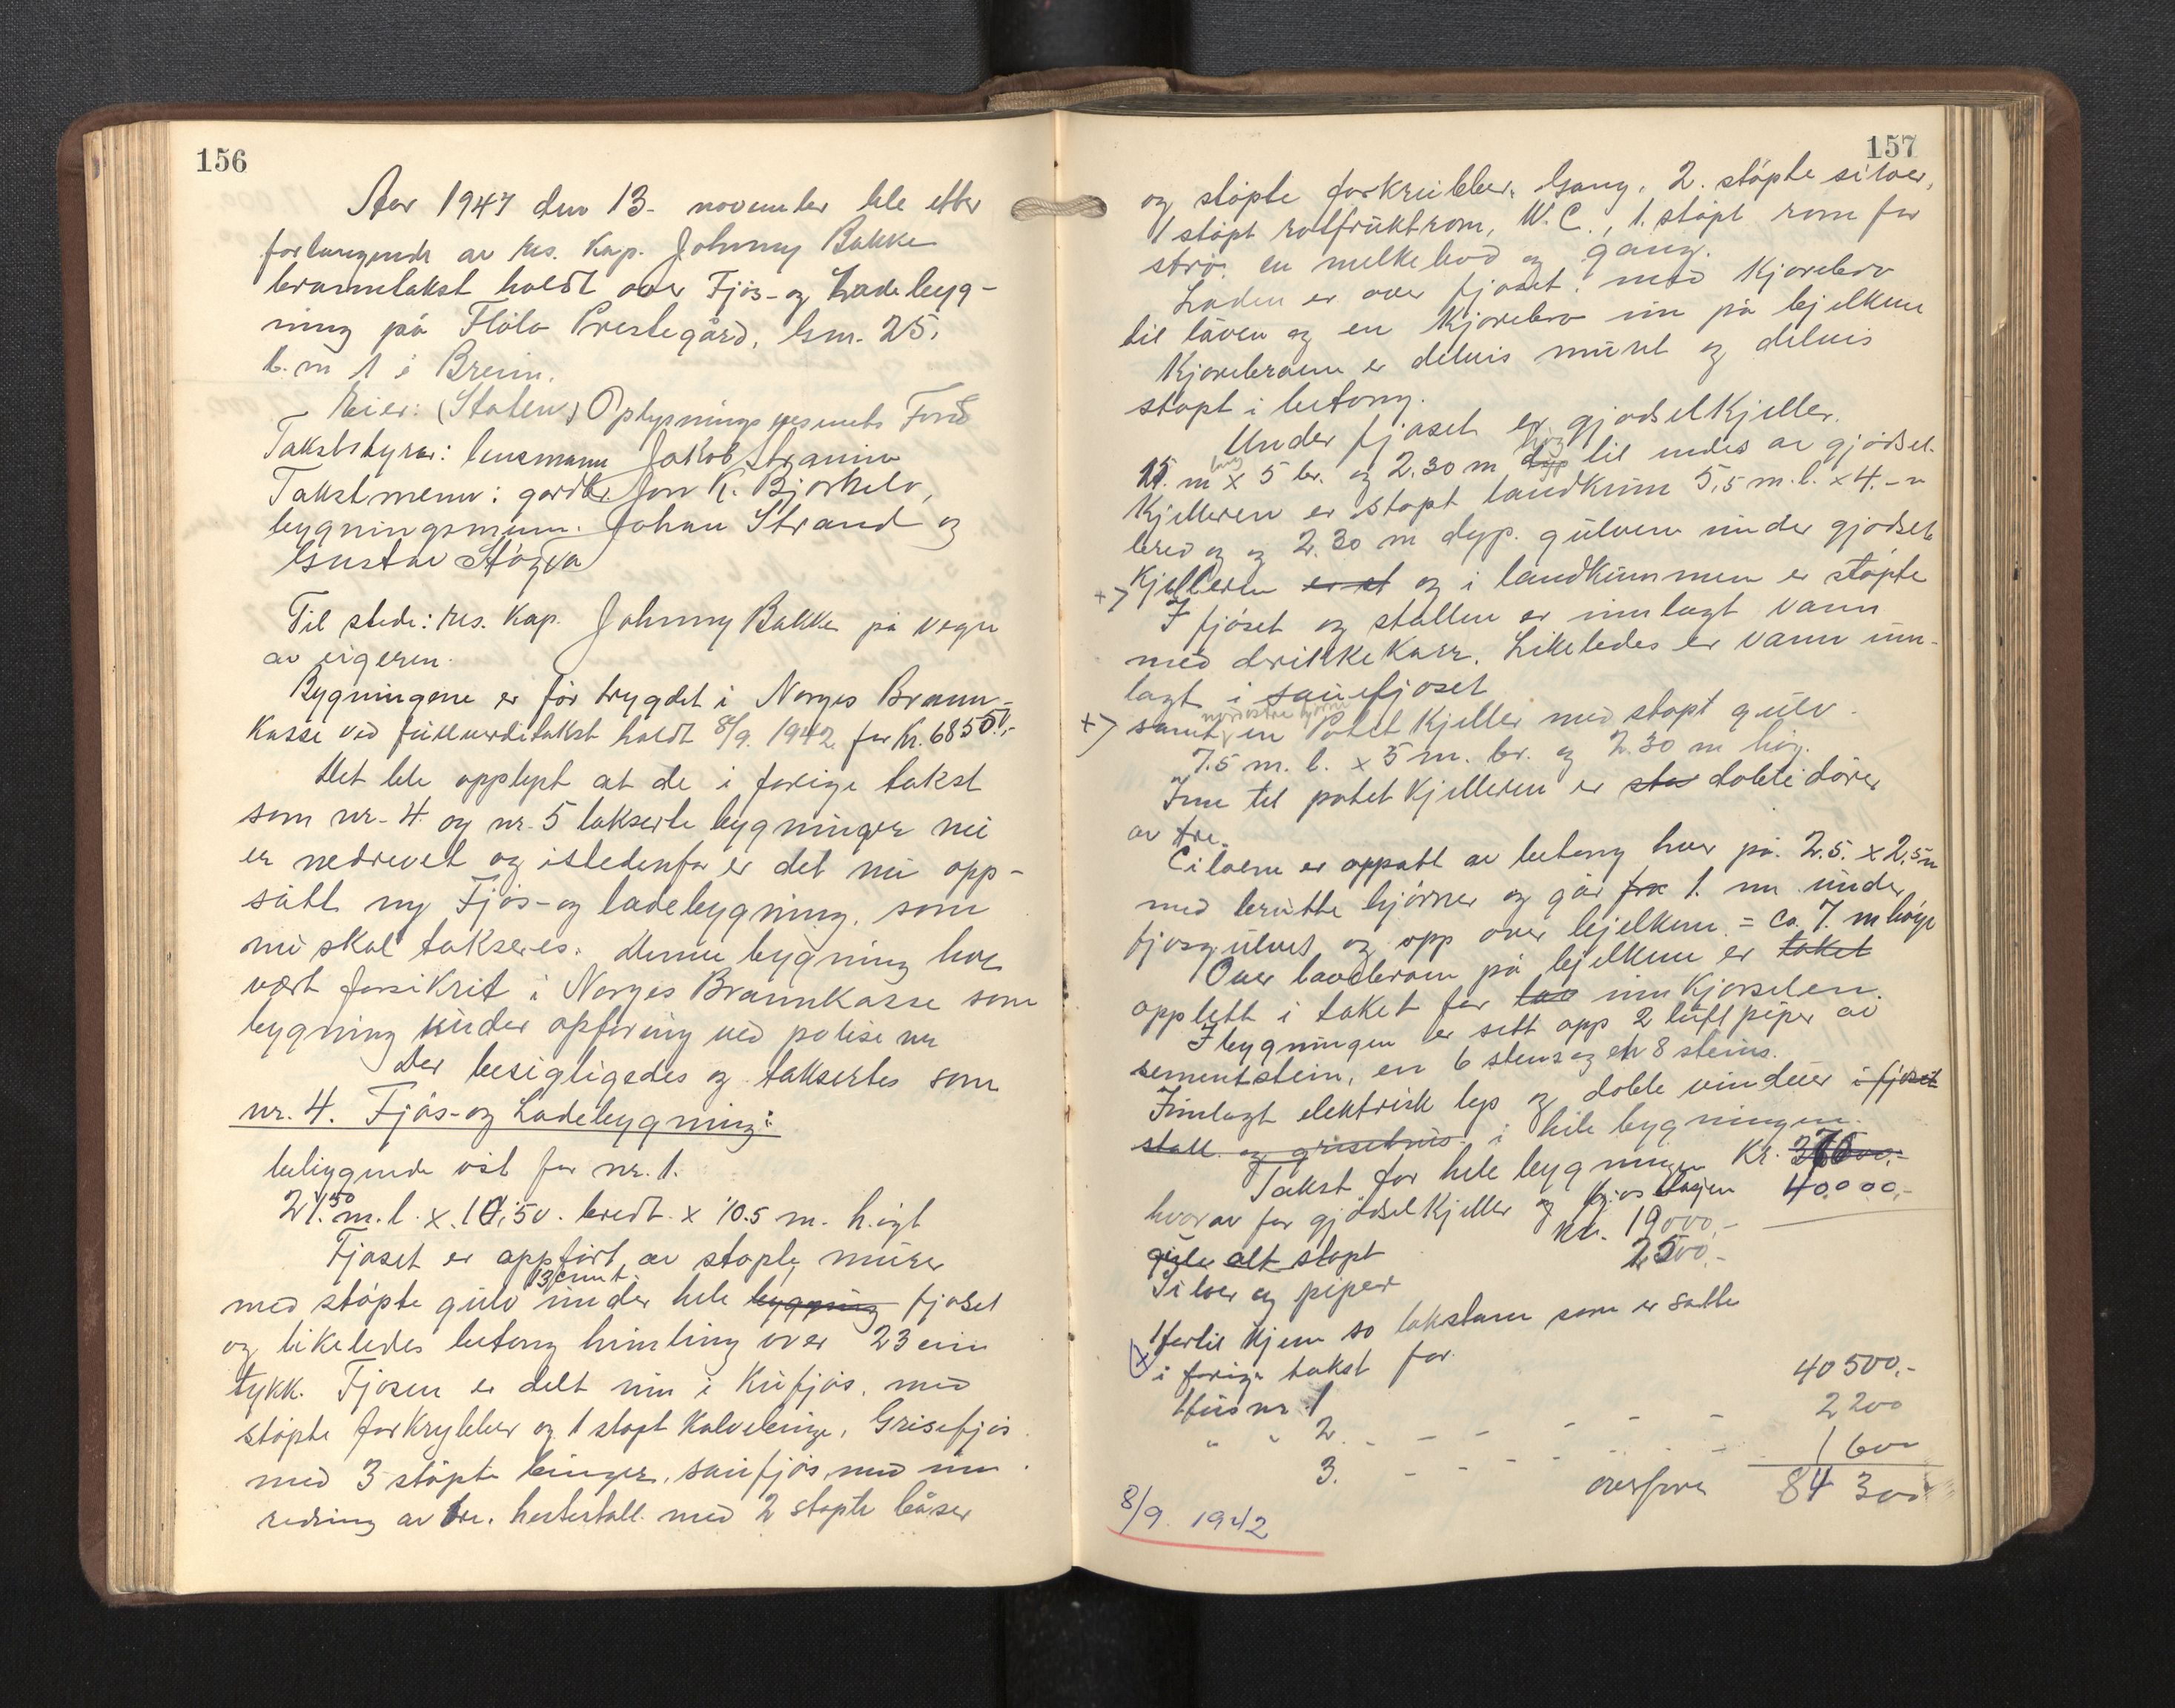 156
Aar 1947 den 13. november ble etter
forlangende av res. kap. Johnny Bakke
branntakst holdt over Fjøs- og Ladebyg-
ning på Flølo Prestegård, Gnr. 25,
b.nr 1 i Breim.
Eier: (Staten) Oplysningsvesenets Fond
Takstbyrar: lensmann Jakob Straume
Takstmenn: gardbr. Jon K. Bjørkelo,
bygningsmenn. Johan Strand og
Gustav Støyva
Til stede: Res. Kap. Johnny Bakke på vegn
av eigeren.
Bygningene er før trygdet i Norges Brann-
kasse ved fullverditakst holdt 8/9. 1942 for kr. 68500,-
Det ble opplyst at de i forige takst
som nr. 4. og nr. 5 takserte bygninger nu
er nedrevet og istedenfor er det nu opp-
sått ny Fjøs- og ladebygning, som
nu skal takseres. Denne bygning har
vært forsikrit i Norges Brannkasse som
bygning under opføring ved polise nr
Der besigtigedes og taksertes som
nr. 4. Fjøs- og Ladebygning:
beliggende øst for nr. 1.
21.50 m. l. x 10,50. bredt x 10.5 m. høgt
Fjøset er oppført av støpte murer
13 cm t.
med støpte gulv under hele bygning fjøset
og likeledes betong himling over 23 cm
tykk. Fjøsen er delt inn i Kufjøs, med
støpte forkrybber og 1 støpt Kalvebinge, Grisefjøs
med 3 støpte binger, saufjøs, med inn
redning av tre. hestestall med 2 støpte båser
157
og støpte forkrubber. Gang, 2. støpte siloer,
1 støpt rotfruktrom, W.C., 1. støpt rom for
strø. en melkebod og gang.
Laden er over fjøset. med Kjørebro
til låven og en Kjørebro inn på bjelkene
Kjørebroene er delvis muret og delvis
støpt i betong.
Under fjøset er gjødselkjeller.
15. m lang x 5 br. og 2.30 m dyp høg til endes av gjødsel-
Kjelleren er støpt landkum 5,5 m. l. x 4. - m
bred og og 2.30 m dyp. gulvene under gjødsel
x> Kjelleren er et og i landkummen er støpte
I fjøset og stallen er innlagt vann
med drikkekarr. Likeledes er vann inn-
lagt i sauefjøset
x> samt nordøstre hjørne en Potetkjeller med støpt gulv.
7.5 m. l. x 5 m. br. og 2.30 m høg.
Inn til potetkjelleren er sto doble dører
av tre.
Ciloene er oppsatt av betong hver på. 2.5. x 2,5 m
med brutte hjørner og går fra 1. m under
fjøsgulvet og opp over bjelkene. = ca. 7. m høge
Over låvebroen på bjelkene er taket
opplett i taket for lao innkjørselen.
I bygningen er sett opp 2 luftpiper av
sementstein, en 6 steins og en 8 steins.
Innlagt elektrisk lys og doble vinduer i fjøset
stall og grisehus i hele bygningen.
Takst for hele bygningen Kr.
40000,-
hvorav for gjødselkjeller og fjøsetasjen
kr. 19000,-
gulv alt støpt
Siloer og piper 2500,-
Hertil kjem so takstane som er satte
x i forige takst for.
Hus nr. 1 40500,-
" " 2. - - - - - - 2200
3. - - - - - - 1600
overføres 84300
8/9 1942